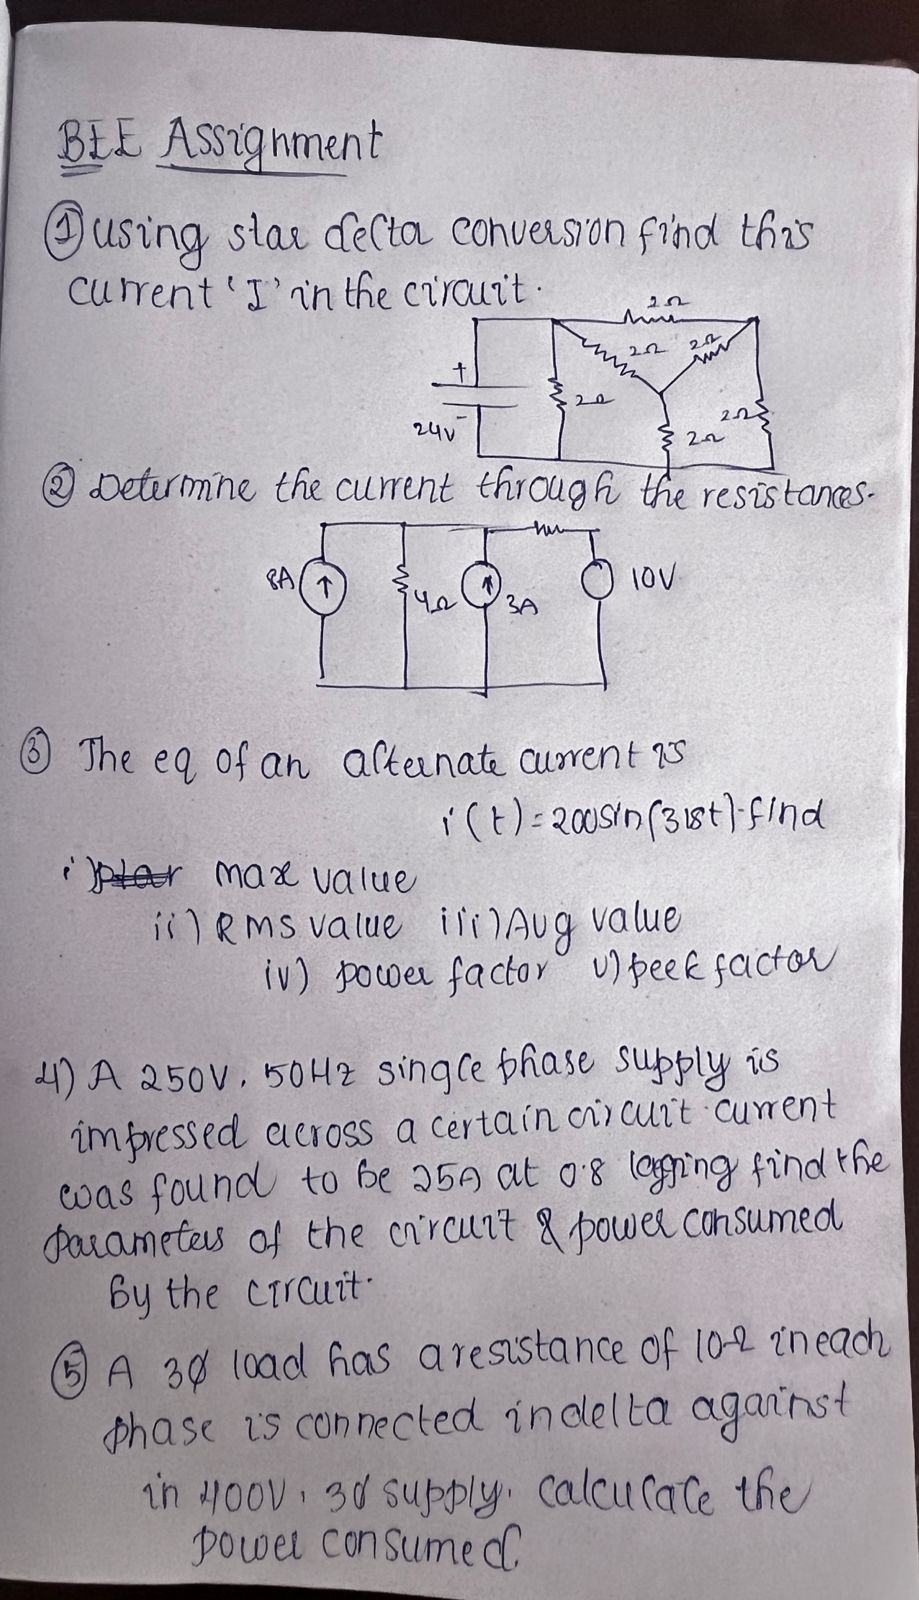 BEE Assignment
① using star delta conversion find this
current 'I' in the circuit.
2Ω
2Ω 2Ω
+
2Ω
2Ω
24V -
2Ω
② Determine the current through the resistances.
8A
4Ω
3A
10V
③ The eq of an alternate current is
i(t)=200sin(318t). find
i) max value
ii) RMS value iii) Avg value
iv) power factor v) peek factor
4) A 250V, 50Hz single phase supply is
impressed across a certain circuit. current
was found to be 25A at 0.8 lagging find the
parameters of the circuit & power consumed
by the circuit.
⑤ A 3ϕ load has a resistance of 10Ω in each
phase is connected in delta against
in 400V, 3ϕ supply. calculate the
power consumed.